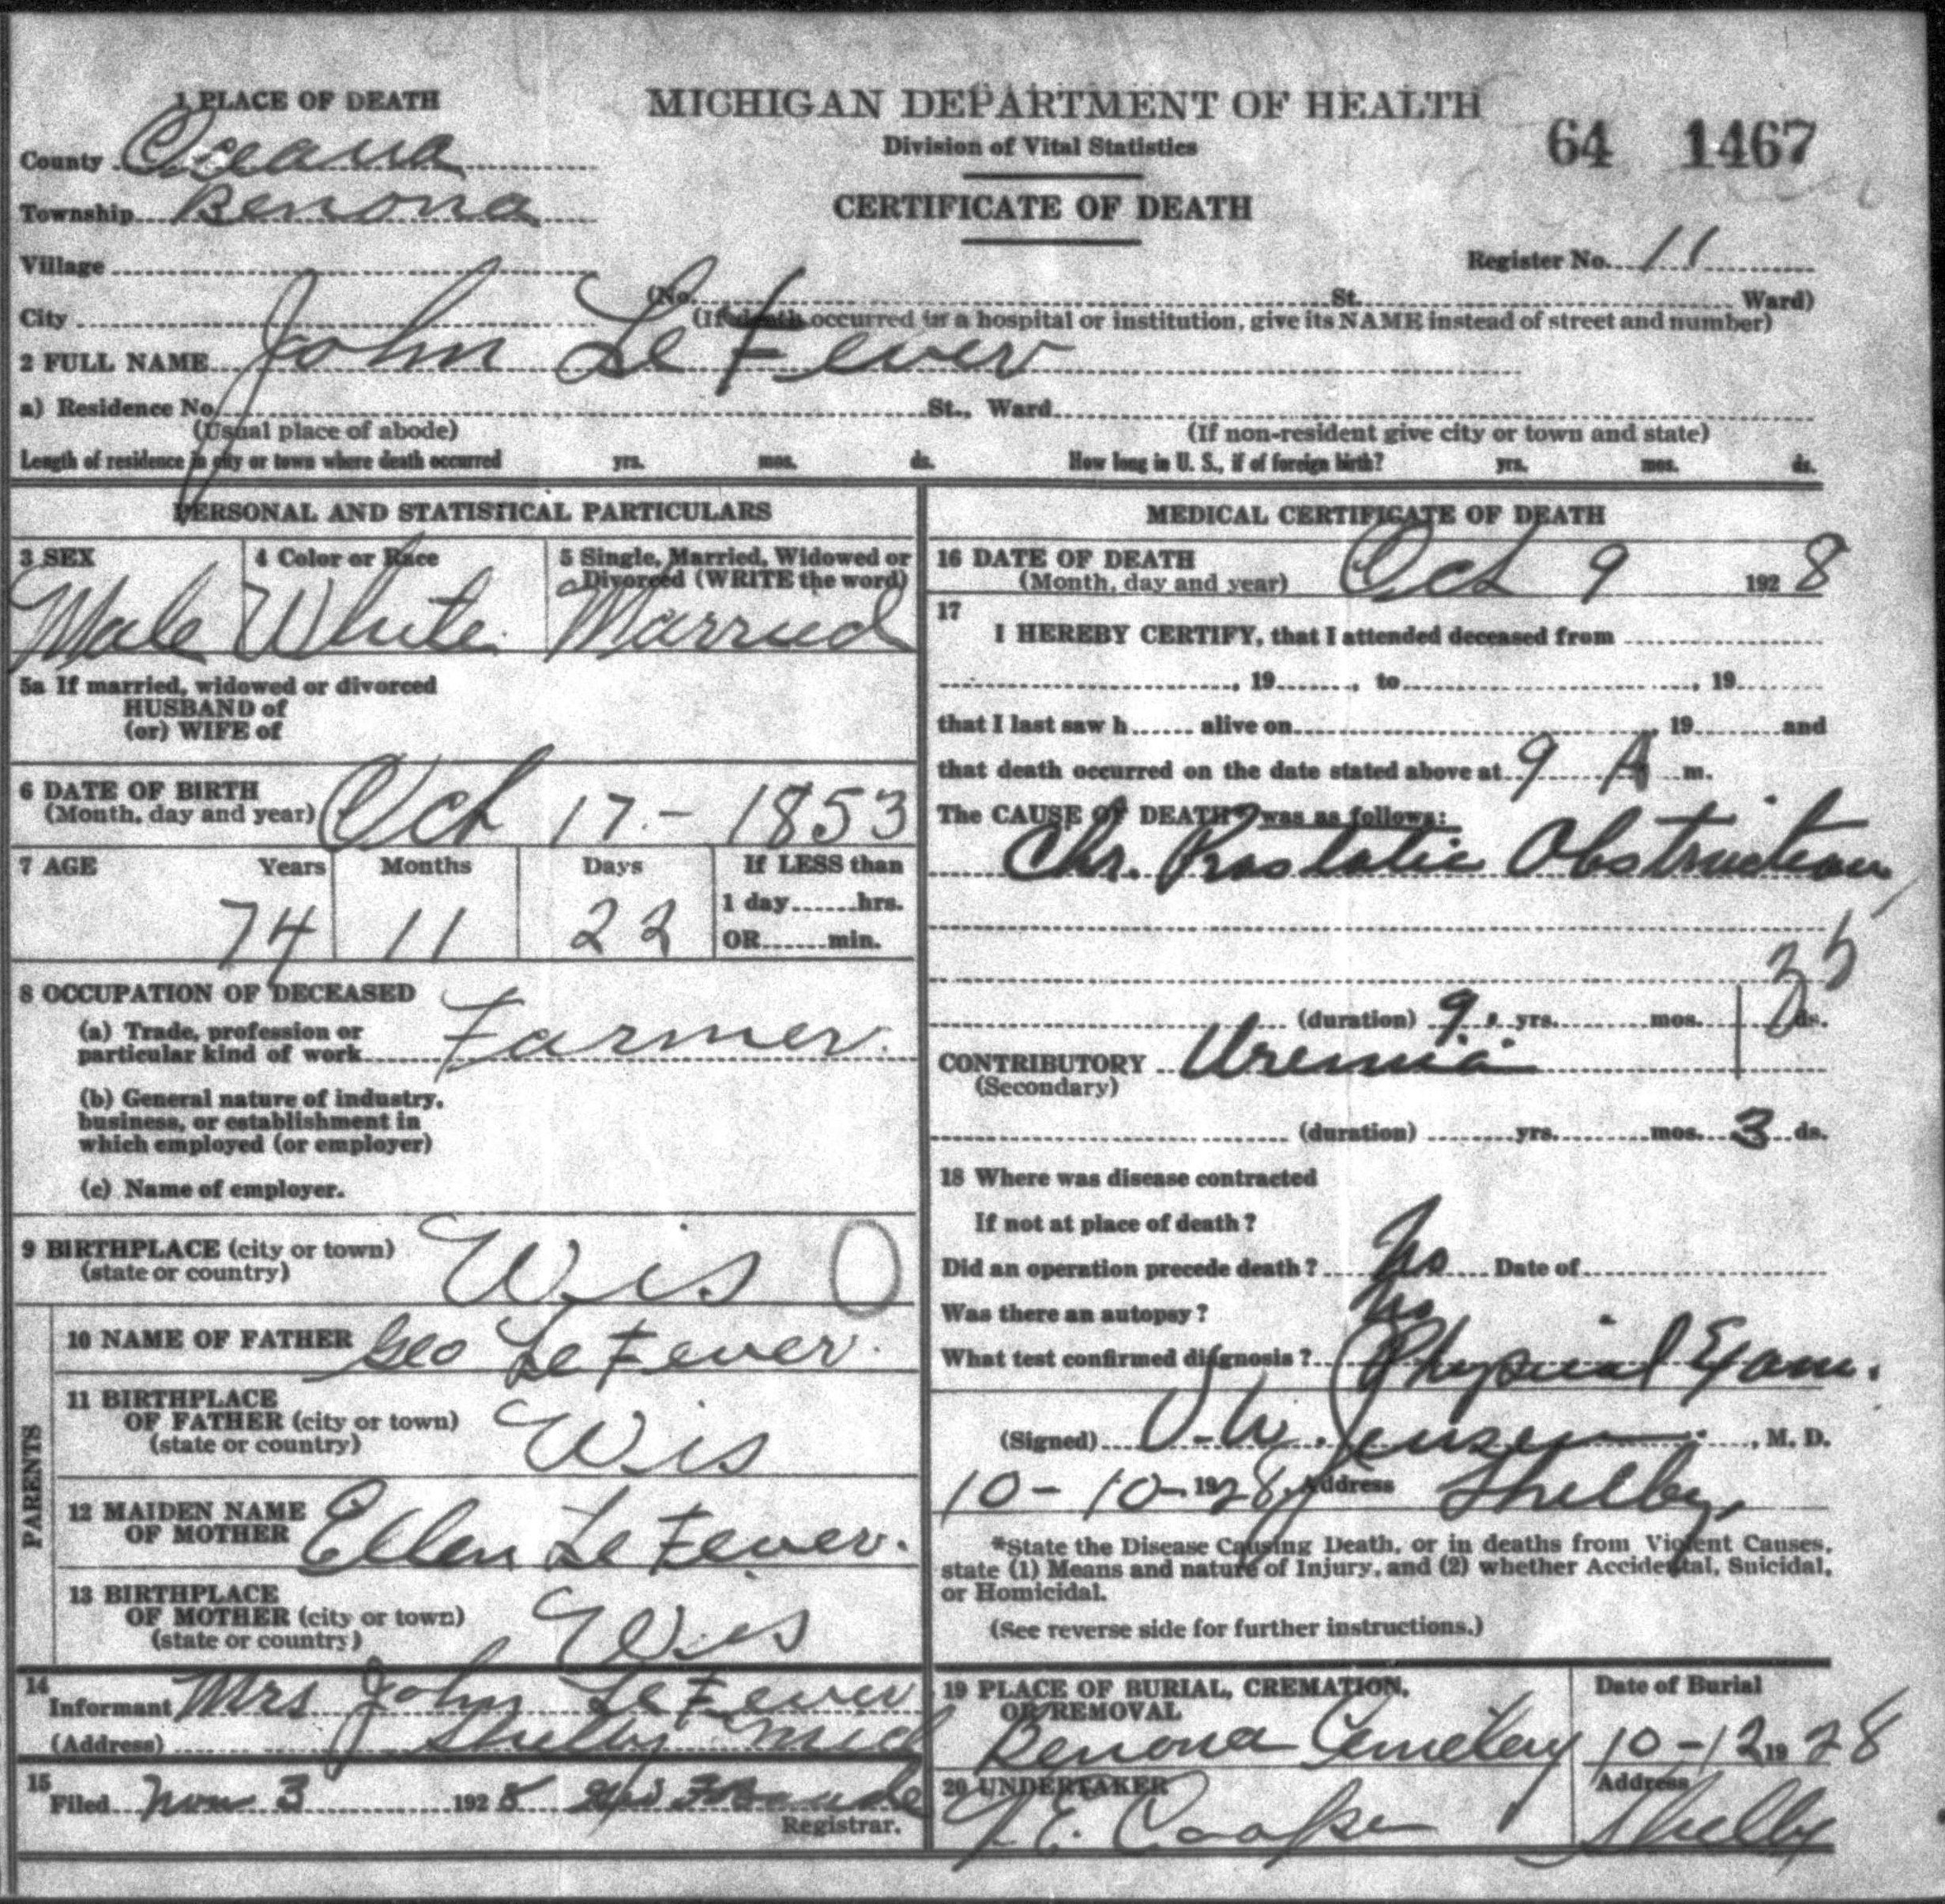 1 PLACE OF DEATH
County Oceana
Township Benona
Village
City
MICHIGAN DEPARTMENT OF HEALTH
Division of Vital Statistics
CERTIFICATE OF DEATH
64 1467
Register No. 11
(No. St. Ward)
(If death occurred in a hospital or institution, give its NAME instead of street and number)
2 FULL NAME John Le Fever
a) Residence No. St., Ward
(Usual place of abode) (If non-resident give city or town and state)
Length of residence in city or town where death occurred yrs. mos. ds. How long in U. S., if of foreign birth? yrs. mos. ds.
PERSONAL AND STATISTICAL PARTICULARS
3 SEX 4 Color or Race 5 Single, Married, Widowed or
Divorced (WRITE the word)
Male White Married
5a If married, widowed or divorced
HUSBAND of
(or) WIFE of
6 DATE OF BIRTH
(Month, day and year) Oct 17 - 1853
7 AGE Years Months Days If LESS than
1 day hrs.
74 11 22 OR min.
8 OCCUPATION OF DECEASED
(a) Trade, profession or
particular kind of work Farmer.
(b) General nature of industry,
business, or establishment in
which employed (or employer)
(c) Name of employer.
9 BIRTHPLACE (city or town)
(state or country) Wis 0
PARENTS
10 NAME OF FATHER Geo Le Fever.
11 BIRTHPLACE
OF FATHER (city or town)
(state or country) Wis
12 MAIDEN NAME
OF MOTHER Ellen Le Fever.
13 BIRTHPLACE
OF MOTHER (city or town)
(state or country) Wis
14
Informant Mrs John Le Fever
(Address) Shelby Mich
15
Filed Nov 3 1928
Registrar.
MEDICAL CERTIFICATE OF DEATH
16 DATE OF DEATH
(Month, day and year) Oct 9 1928
17
I HEREBY CERTIFY, that I attended deceased from
, 19 , to , 19
that I last saw h alive on , 19 and
that death occurred on the date stated above at 9 A m.
The CAUSE OF DEATH* was as follows:
Chr. Prostatic Obstruction
(duration) 9 yrs. mos. ds.
CONTRIBUTORY Uremia
(Secondary)
(duration) yrs. mos. 3 ds.
18 Where was disease contracted
If not at place of death?
Did an operation precede death? No Date of
Was there an autopsy? No
What test confirmed diagnosis? Physical Exam.
(Signed) Jensen , M. D.
10-10-1928 Address Shelby,
*State the Disease Causing Death, or in deaths from Violent Causes,
state (1) Means and nature of Injury, and (2) whether Accidental, Suicidal,
or Homicidal.
(See reverse side for further instructions.)
19 PLACE OF BURIAL, CREMATION,
OR REMOVAL
Benona Cemetery
Date of Burial
10-12 1928
20 UNDERTAKER
Cooper
Address
Shelby